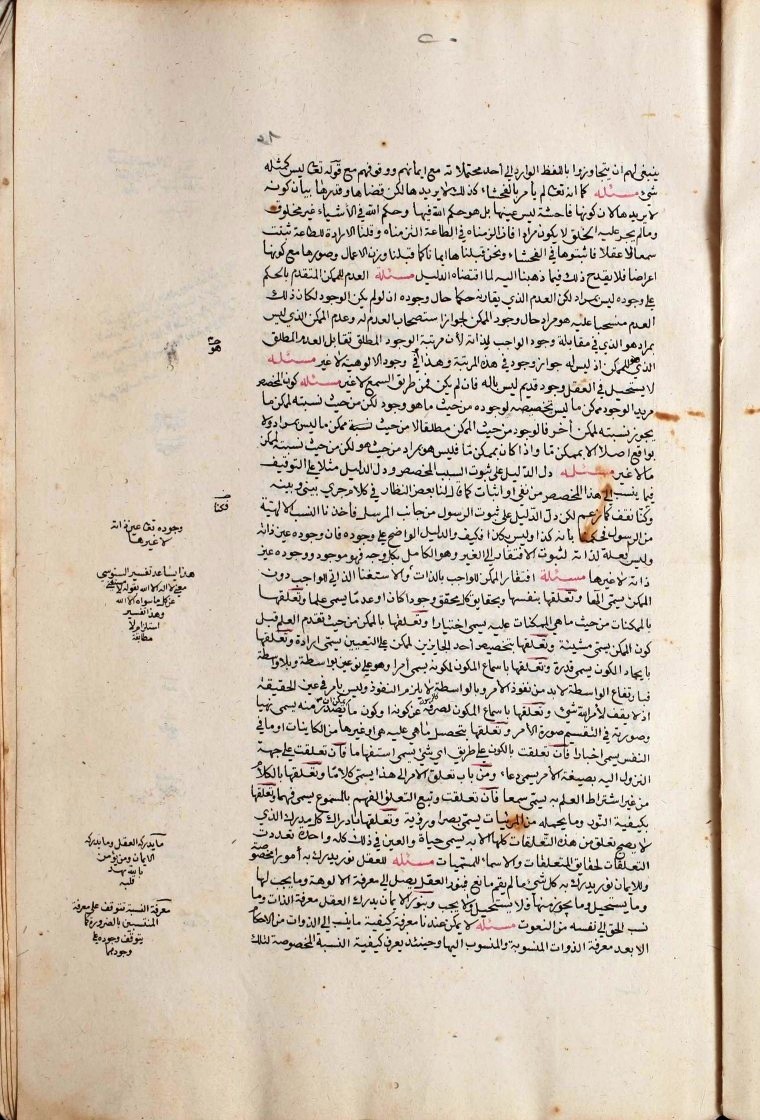 ينبغي لهم ان يتجاوزوا باللفظ الوارد الى احد محتملاته مع ايمانهم ووقوفهم مع قوله تعا ليس كمثله
شيء مسئله كما انه تعا لم يامر بالفحشاء كذلك لا يريدها لكن قضاها وقدرها بيان كونه
لا يريدها لان كونها فاحشة ليس عينها بل هو حكم الله فيها وحكم الله في الاشياء غير مخلوق
وما لم يجر عليه الخلق لا يكون مرادا فان الزمناه في الطاعة التزمناه وقلنا الارادة للطاعة ثبتت
سمعا لا عقلا فاثبتوها في الفحشاء ونحن قبلناها ايمانا كما قبلنا وزن الاعمال وصورها مع كونها
اعراضا فلا يقدح ذلك فيما ذهبنا اليه لما اقتضاه الدليل مسئلة العدم للممكن المتقدم بالحكم
على وجوده ليس بمراد لكن العدم الذي يقارنه حكما حال وجوده ان لو لم يكن الوجود لكان ذلك
العدم منسحبا عليه هو مراد حال وجود الممكن لجواز استصحاب العدم له وعدم الممكن الذي ليس
بمراد هو الذي في مقابلة وجود الواجب لذاته لان مرتبة الوجود المطلق تقابل العدم المطلق
الذي هو للممكن اذ ليس له جواز وجود في هذه المرتبة وهذا في وجود الالوهية لا غير مسئله
لا يستحيل في العقل وجود قديم ليس باله فان لم يكن فمن طريق السمع لا غير مسئله كون المخصص
مريدا لوجود ممكن ما ليس تخصيصه لوجوده من حيث ما هو وجود لكن من حيث نسبته لممكن ما
يجوز نسبته لممكن آخر فالوجود من حيث الممكن مطلقا لا من حيث نسبة ممكن ما ليس بمراد ولا
بواقع اصلا الا بممكن ما واذا كان بممكن ما فليس هو بمراد من حيث هو لكن من حيث نسبته لممكن
ما لا غير مسئله دل الدليل على ثبوت السبب المخصص ودل الدليل مثلا على التوقيف
فيما ينسب الى هذا المخصص من نفي او اثبات كما قال لنا بعض النظار في كلام جرى بيني وبينه
وكنا نقف كما زعم لكن دل الدليل على ثبوت الرسول من جانب المرسل فاخذنا النسب الالهية
من الرسول فحكمنا بانه كذا وليس بكذا فكيف والدليل الواضح على وجوده فان وجوده عين ذاته
وليس بعلة لذاته لثبوت الافتقار الى الغير وهو الكامل بكل وجه فهو موجود ووجوده عين
ذاته لا غيرها مسئلة افتقار الممكن للواجب بالذات والاستغناء الذاتي للواجب دون
الممكن يسمى الها وتعلقها بنفسها وبحقايق كل محقق وجودا كان او عدما يسمى علما وتعلقها
بالممكنات من حيث ما هي الممكنات عليه يسمى اختيارا وتعلقها بالممكن من حيث تقدم العلم قبل
كون الممكن يسمى مشيئة وتعلقها بتخصيص احد الجايزين للممكن على التعيين يسمى ارادة وتعلقها
بايجاد المكون يسمى قدرة وتعلقها باسماع المكون لكونه يسمى امرا وهو على نوعين بواسطة وبلا واسطة
فبارتفاع الواسطة لا بد من نفوذ الامر وبالواسطة لا يلزم النفوذ وليس بامر في عين الحقيقة
اذ لا يقف لامر الله شئ وتعلقها باسماع المكون لصرفه عن كونه او كون ما يصدر منه يسمى نهيا
وصورته في التقسيم صورة الامر وتعلقها بتحصيل ما هي عليه هي او غيرها من الكاينات او ما في
النفس يسمى اخبارا فان تعلقت بالكون على طريق اي شئ يسمى استفهاما فان تعلقت على جهة
النزول اليه بصيغة الامر يسمى دعاء ومن باب تعلق الامر الى هذا يسمى كلاما وتعلقها بالكلام
من غير اشتراط العلم به يسمى سمعا فان تعلقت وتبع التعلق الفهم بالمسموع يسمى فهما وتعلقها
بكيفية النور وما يحمله من المرئيات يسمى بصرا ورؤية وتعلقها بادراك كل مدرك الذي
لا يصح تعلق من هذه التعلقات كلها الا به يسمى حياة والعين في ذلك كله واحدة تعددت
التعلقات لحقايق المتعلقات والاسماء للمسميات مسئله للعقل نور يدرك به امورا مخصوصة
وللايمان نور يدرك به كل شئ ما لم يقم مانع فبنور العقل يصل الى معرفة الالوهة وما يجب لها
وما يستحيل وما يجوز منها فلا يستحيل ولا يجب وبنور الايمان يدرك العقل معرفة الذات وما
نسب الحق الى نفسه من النعوت مسئلة لا يمكن عندنا معرفة كيفية ما ينسب الى الذوات من الاحكام
الا بعد معرفة الذوات المنسوبة والمنسوب اليها وحينئذ يعرف كيفية النسبة المخصوصة لتلك
هو
فكنا
وجوده تعا عين ذاته
لا غيرها
هذا يساعد تفسير السنوسي
معنى لا اله الا الله بقوله لا مستغنى
عن كل ما سواه الا الله
وهذا تفسير
استلزام لا
مطابقة
ما يدركه العقل وما يدركه
الايمان ومن يؤمن
بالله يهد
قلبه
معرفة النسبة تتوقف على معرفة
المنتسبين بالضرورة كما
يتوقف وجوده على
وجودهما